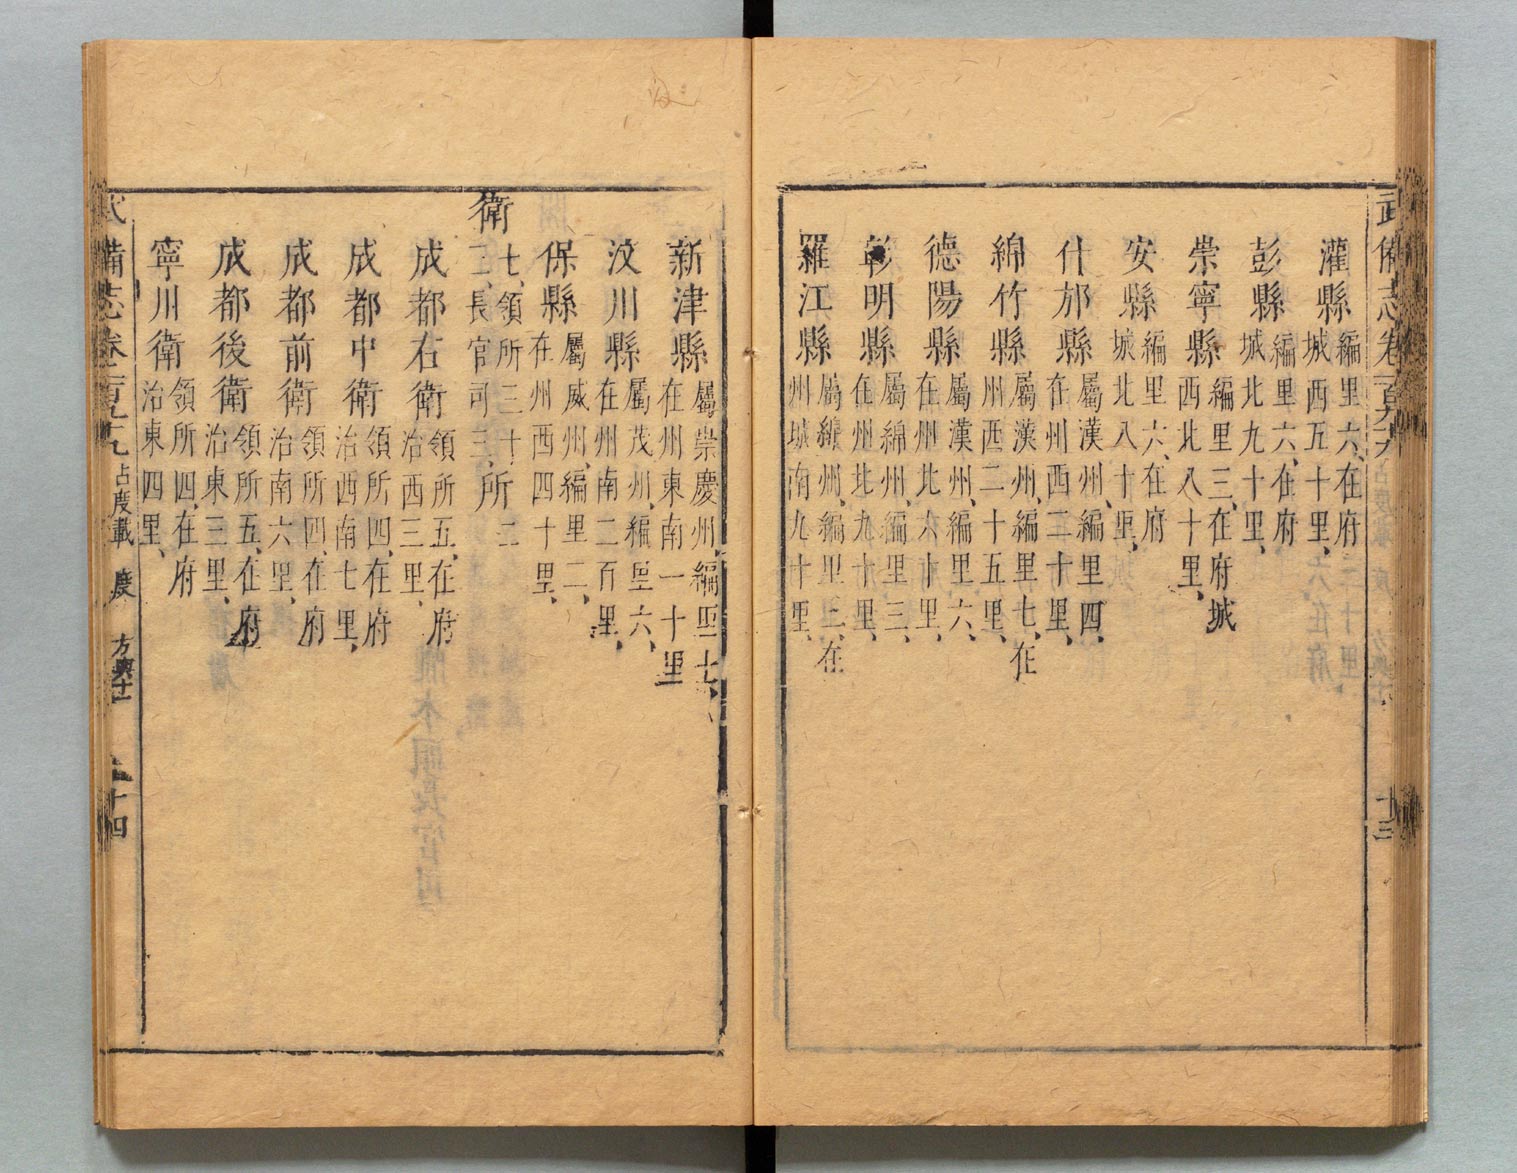 武備志卷一百九十六
十三
灌縣 編里六、在府城西五十里、
彭縣 編里六、在府城北九十里、
崇寧縣 編里三、在府城西北八十里、
安縣 編里六、在府城北八十里、
什邡縣 屬漢州、編里四、在州西二十里、
綿竹縣 屬漢州、編里七、在州西二十五里、
德陽縣 屬漢州、編里六、在州北六十里、
彰明縣 屬綿州、編里三、在州北九十里、
羅江縣 屬綿州、編里三、在州城南九十里、
新津縣 屬崇慶州、編里十、在州東南一十里
汶川縣 屬茂州、編里六、在州南二百里、
保縣 屬威州、編里二、在州西四十里、
衛 七、領所三十、所二二、長官司三、
成都右衛 領所五、在府治西三里、
成都中衛 領所四、在府治西南七里、
成都前衛 領所四、在府治南六里、
成都後衛 領所五、在府治東三里、
寧川衛 領所四、在府治東四里、
武備志卷一百九十六 占度載 度 方輿十一
十四